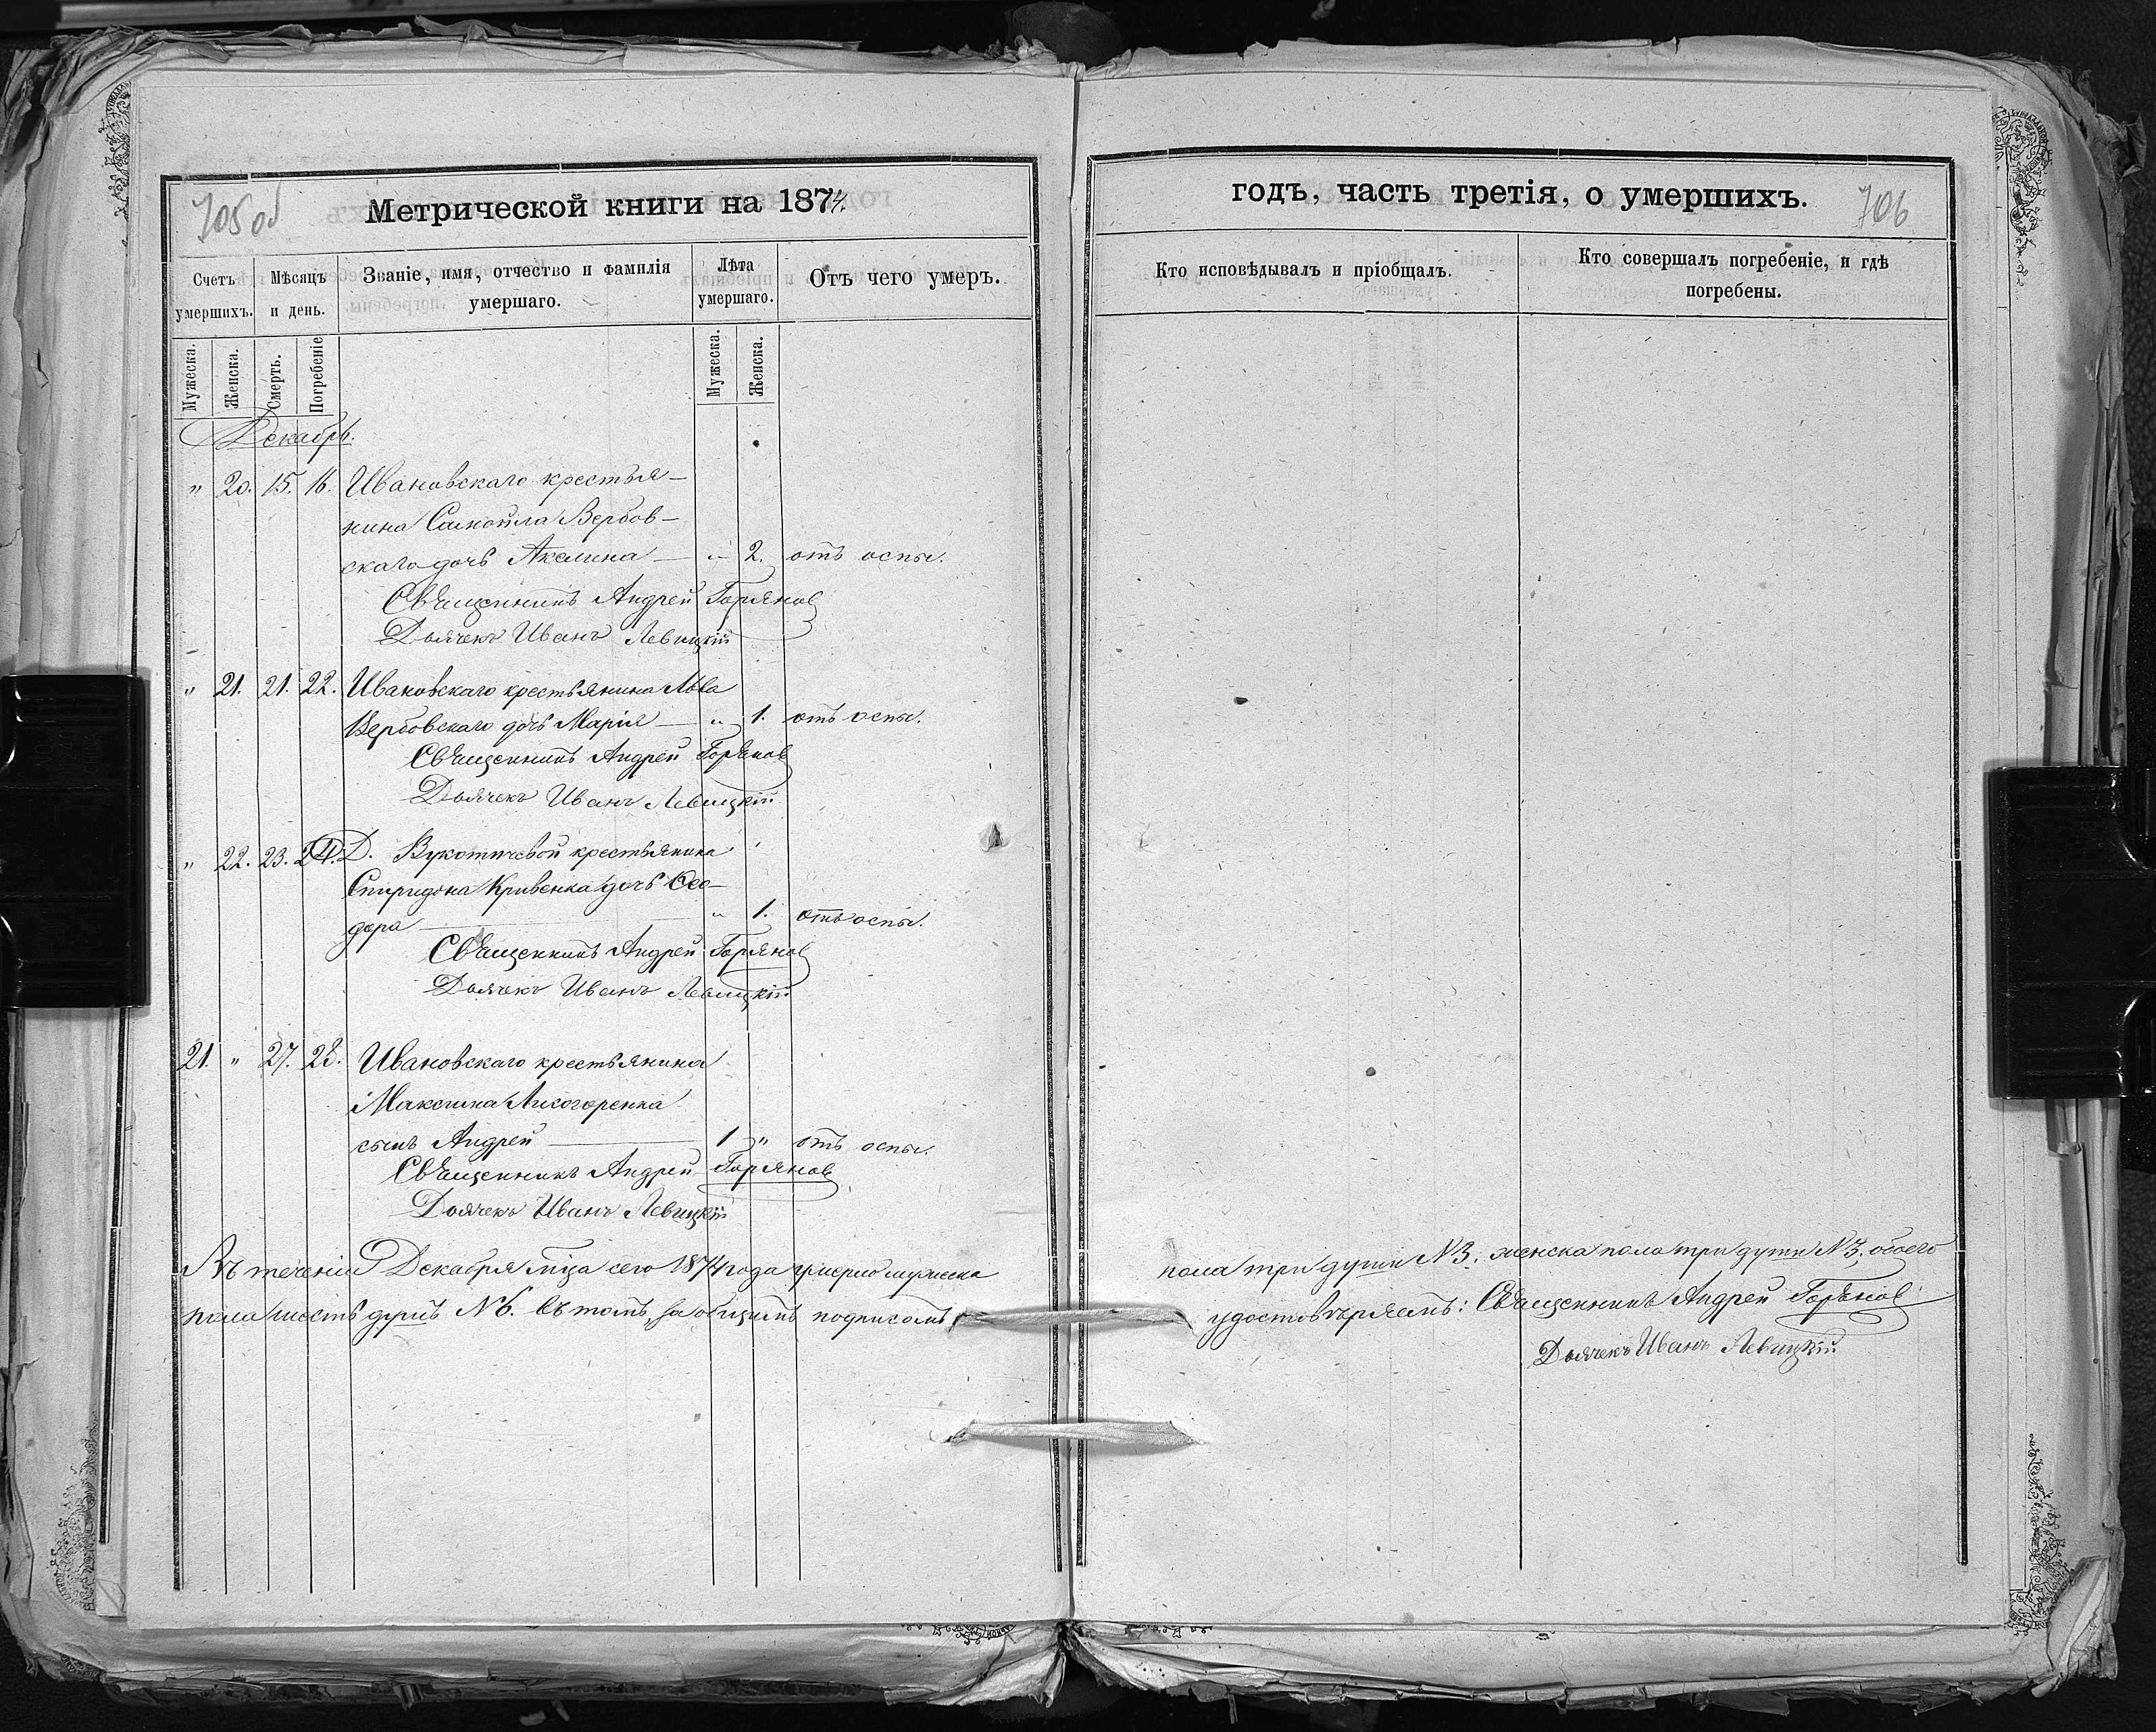 705 об
Метрической книги на 1874.
годъ, часть третія, о умершихъ.
706
Счетъ умершихъ.
Мѣсяцъ и день.
Званіе, имя, отчество и фамилія умершаго.
Лѣта умершаго.
Отъ чего умеръ.
Кто исповѣдывалъ и пріобщалъ.
Кто совершалъ погребеніе, и гдѣ погребены.
Мужеска.
Женска.
Смерть.
Погребеніе
Мужеска.
Женска.
Декабрь.
" 20. 15. 16. Ивановскаго крестья-
нина Самойла Вербов-
скаго дочь Акелина — " 2. отъ оспы.
Священникъ Андрей Горянов
Дьячекъ Иванъ Левицкій
" 21. 21. 22. Ивановскаго крестьянина Льва
Вербовскаго дочь Марія — " 1. отъ оспы.
Священникъ Андрей Горянов
Дьячекъ Иванъ Левицкій
" 22. 23. 24. Д. Вукотичевой крестьянина
Спиридона Кривенка дочь Ѳео-
дора — " 1. отъ оспы.
Священникъ Андрей Горянов
Дьячекъ Иванъ Левицкій
21. " 27. 28. Ивановскаго крестьянина
Максима Лисогоренка
сынъ Андрей — 1 " отъ оспы.
Священникъ Андрей Горянов
Дьячекъ Иванъ Левицкій
Въ теченіи Декабря мца сего 1874 года умерло мужеска
пола три души №3. женска пола три души №3, обоего
пола шесть душъ №6. въ томъ, за общимъ подписомъ
удостовѣряемъ: Священникъ Андрей Горянов
Дьячекъ Иванъ Левицкій